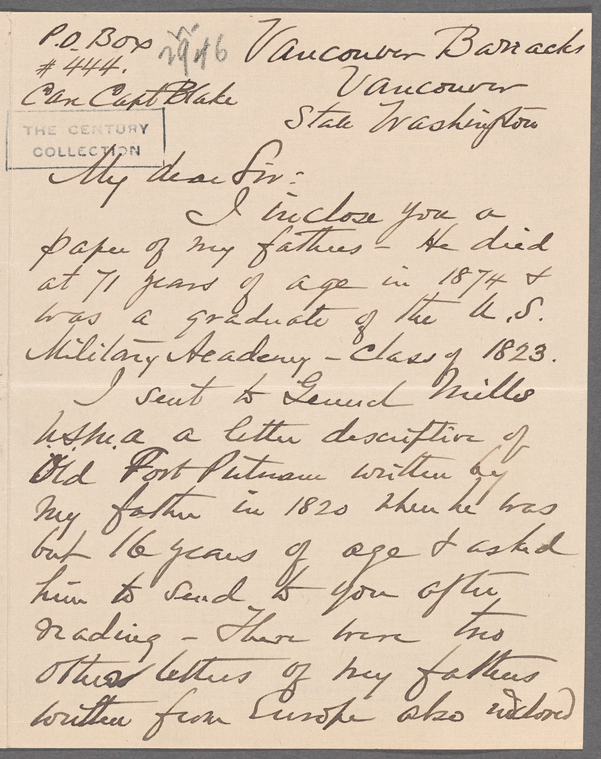 P.O. Box
# 444.
Care Capt Blake
2946
Vancouver Barracks
Vancouver
State Washington
THE CENTURY
COLLECTION
My dear Sir:
I inclose you a
paper of my fathers - He died
at 71 years of age in 1874 &
was a graduate of the U.S.
Military Academy - Class of 1823.
I sent to General Mills
U.S.M.A a letter descriptive of
Old Fort Putnam written by
my father in 1820 when he was
but 16 years of age & asked
him to send to you after
reading - There were two
other letters of my fathers
written from Europe also inclosed